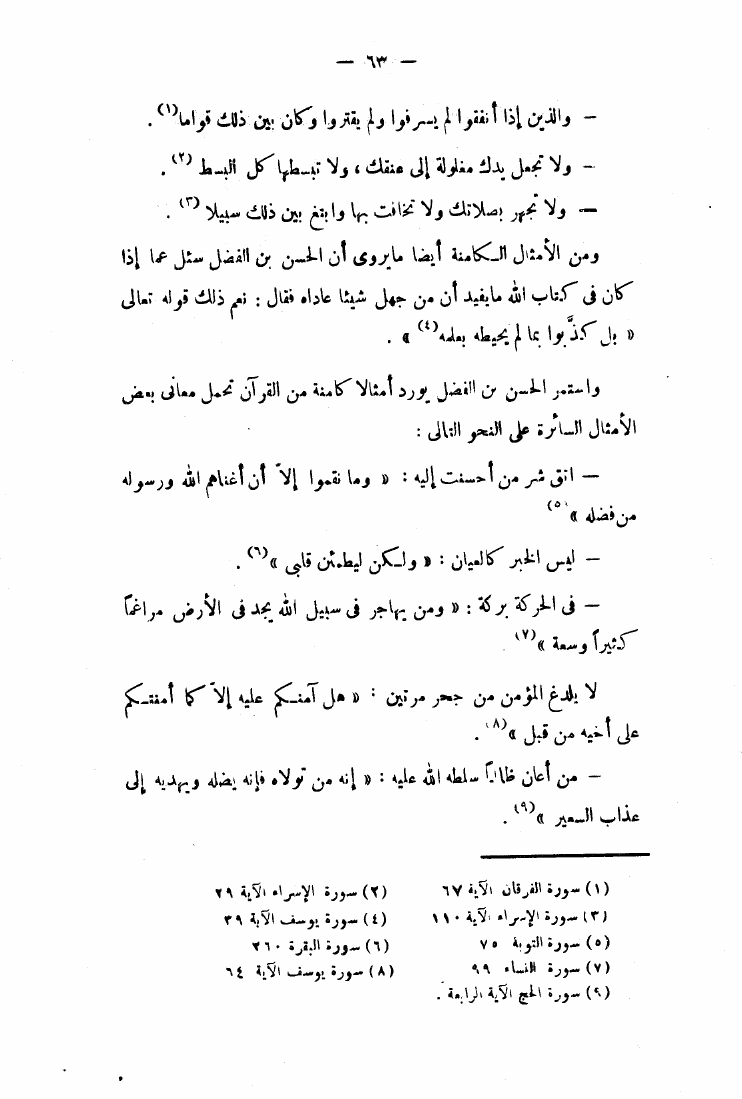 — ٦٣ —
— والذين إذا أنفقوا لم يسرفوا ولم يقتروا وكان بين ذلك قواما(١) .
— ولا تجعل يدك مغلولة إلى عنقك ، ولا تبسطها كل البسط (٢) .
— ولا تجهر بصلاتك ولا تخافت بها وابتغ بين ذلك سبيلا (٣) .
ومن الأمثال الكامنة أيضا مايروى أن الحسن بن الفضل سئل عما إذا
كان فى كتاب الله مايفيد أن من جهل شيئا عاداه فقال : نعم ذلك قوله تعالى
« بل كذَّبوا بما لم يحيطه بعلمه(٤) » .
واستمر الحسن بن الفضل يورد أمثالا كامنة من القرآن تحمل معانى بعض
الأمثال السائرة على النحو التالى :
— اتق شر من أحسنت إليه : « وما نقموا إلاّ أن أغناهم الله ورسوله
من فضله »(٥)
— ليس الخبر كالعيان : « ولكن ليطمئن قلبى »(٦) .
— فى الحركة بركة : « ومن يهاجر فى سبيل الله يجد فى الأرض مراغماً
كثيراً وسعة »(٧) .
لا يلدغ المؤمن من جحر مرتين : « هل آمنكم عليه إلاّ كما أمنتكم
على أخيه من قبل »(٨) .
— من أعان ظالماً سلطه الله عليه : « إنه من تولاه فإنه يضله ويهديه إلى
عذاب السعير »(٩) .
(١) سورة الفرقان الآية ٦٧ (٢) سورة الإسراء الآية ٢٩
(٣) سورة الإسراء الآية ١١٠ (٤) سورة يوسف الآية ٣٩
(٥) سورة التوبة ٧٥ (٦) سورة البقرة ٢٦٠
(٧) سورة النساء ٩٩ (٨) سورة يوسف الآية ٦٤
(٩) سورة الحج الآية الرابعة .